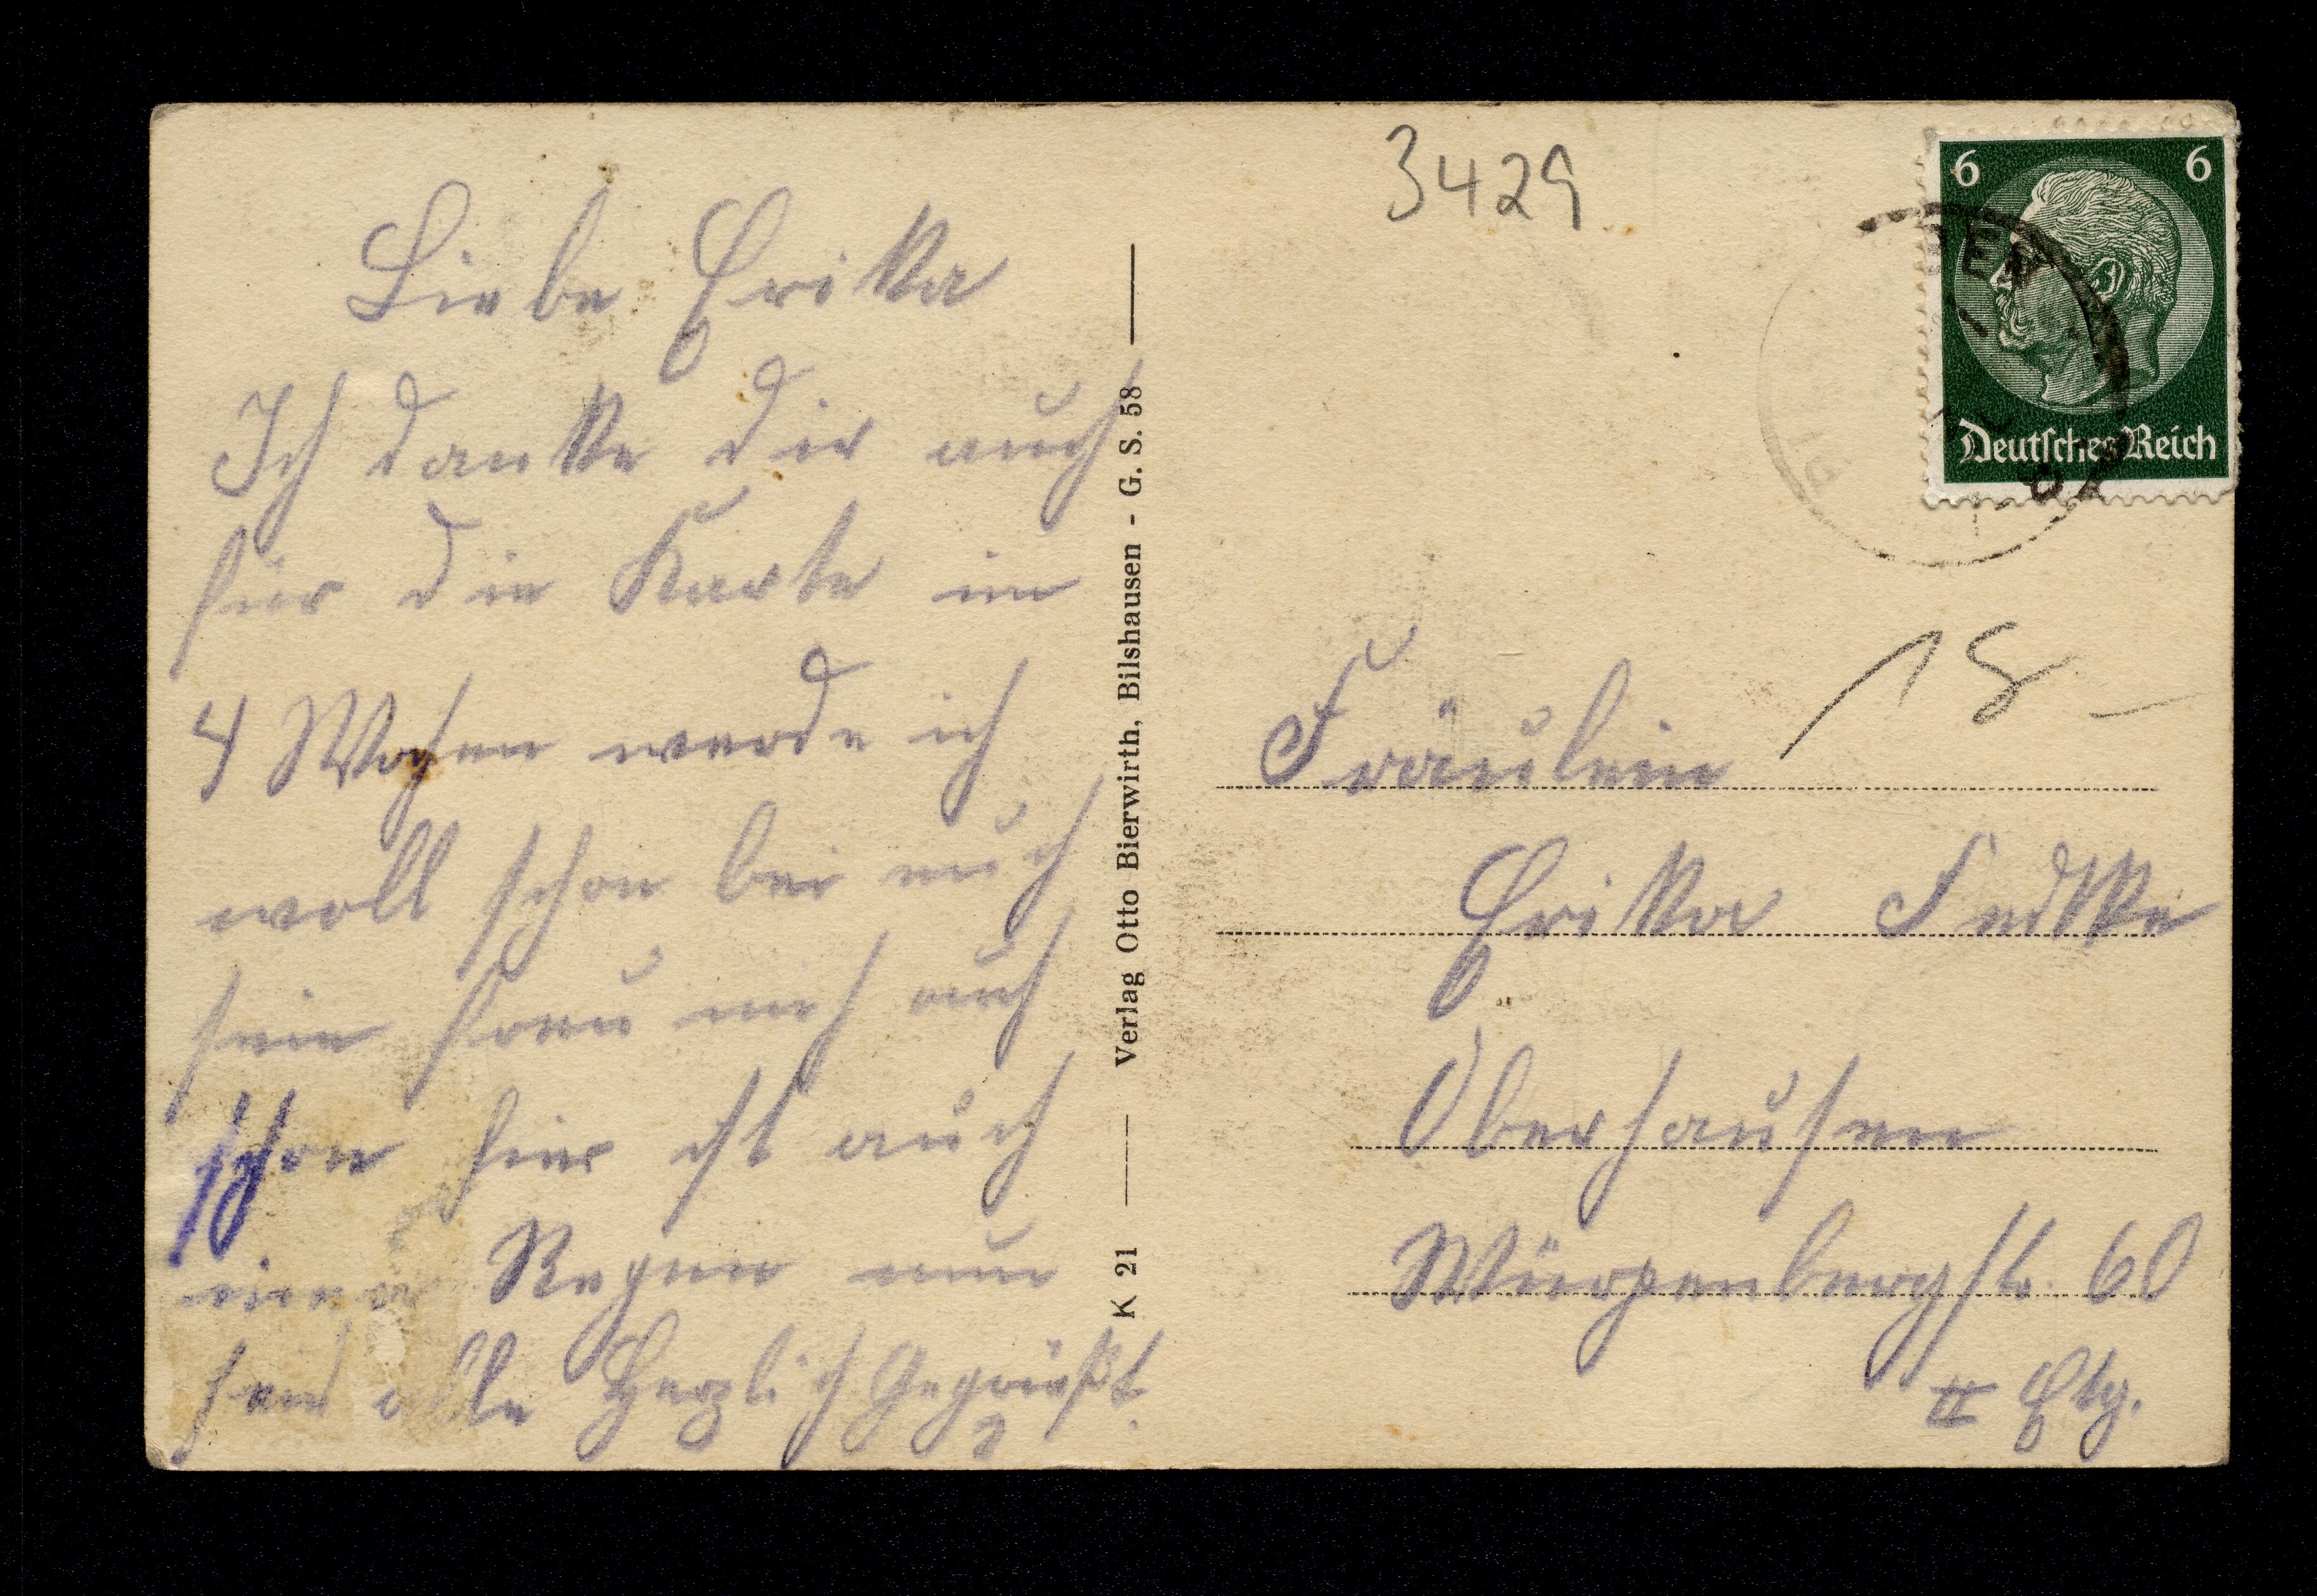 Liebe Erika
Ich danke dir auch
für die Karte in
4 Wochen werde ich
woll schon bei euch
sein freu mich auch
schon hier ist auch
immer Regen nun
seid alle Herzlich Gegrüßt.
K 21 Verlag Otto Bierwirth, Bilshausen - G. S. 58
3429
6 6
Deutsches Reich
18 –
Fräulein
Erika Fedtke
Oberhausen
60
II Etg.